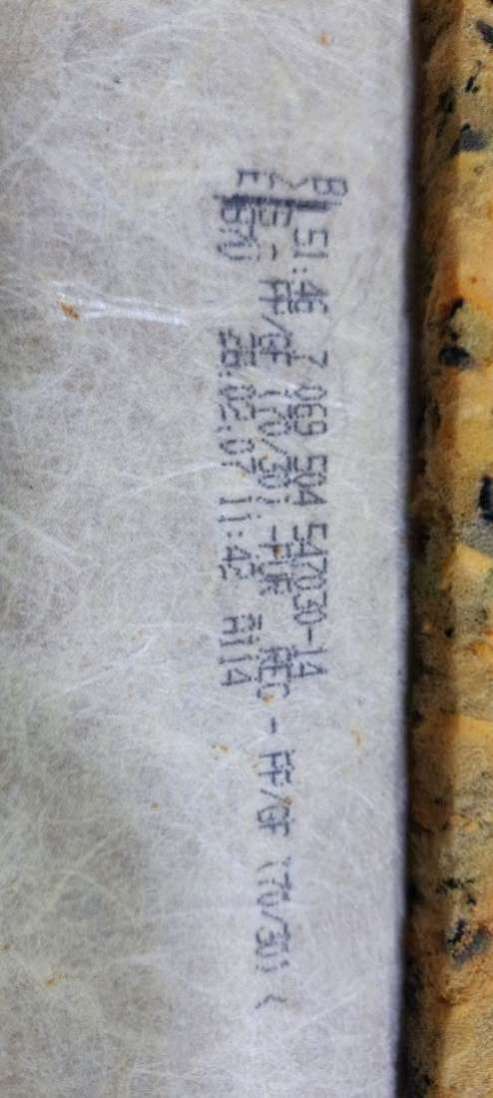 51:46 7 069 504 547030-14
FF/GF (70/30) -PUR REC - FF/GF (70/30) <
28.02.07 11:42 A114